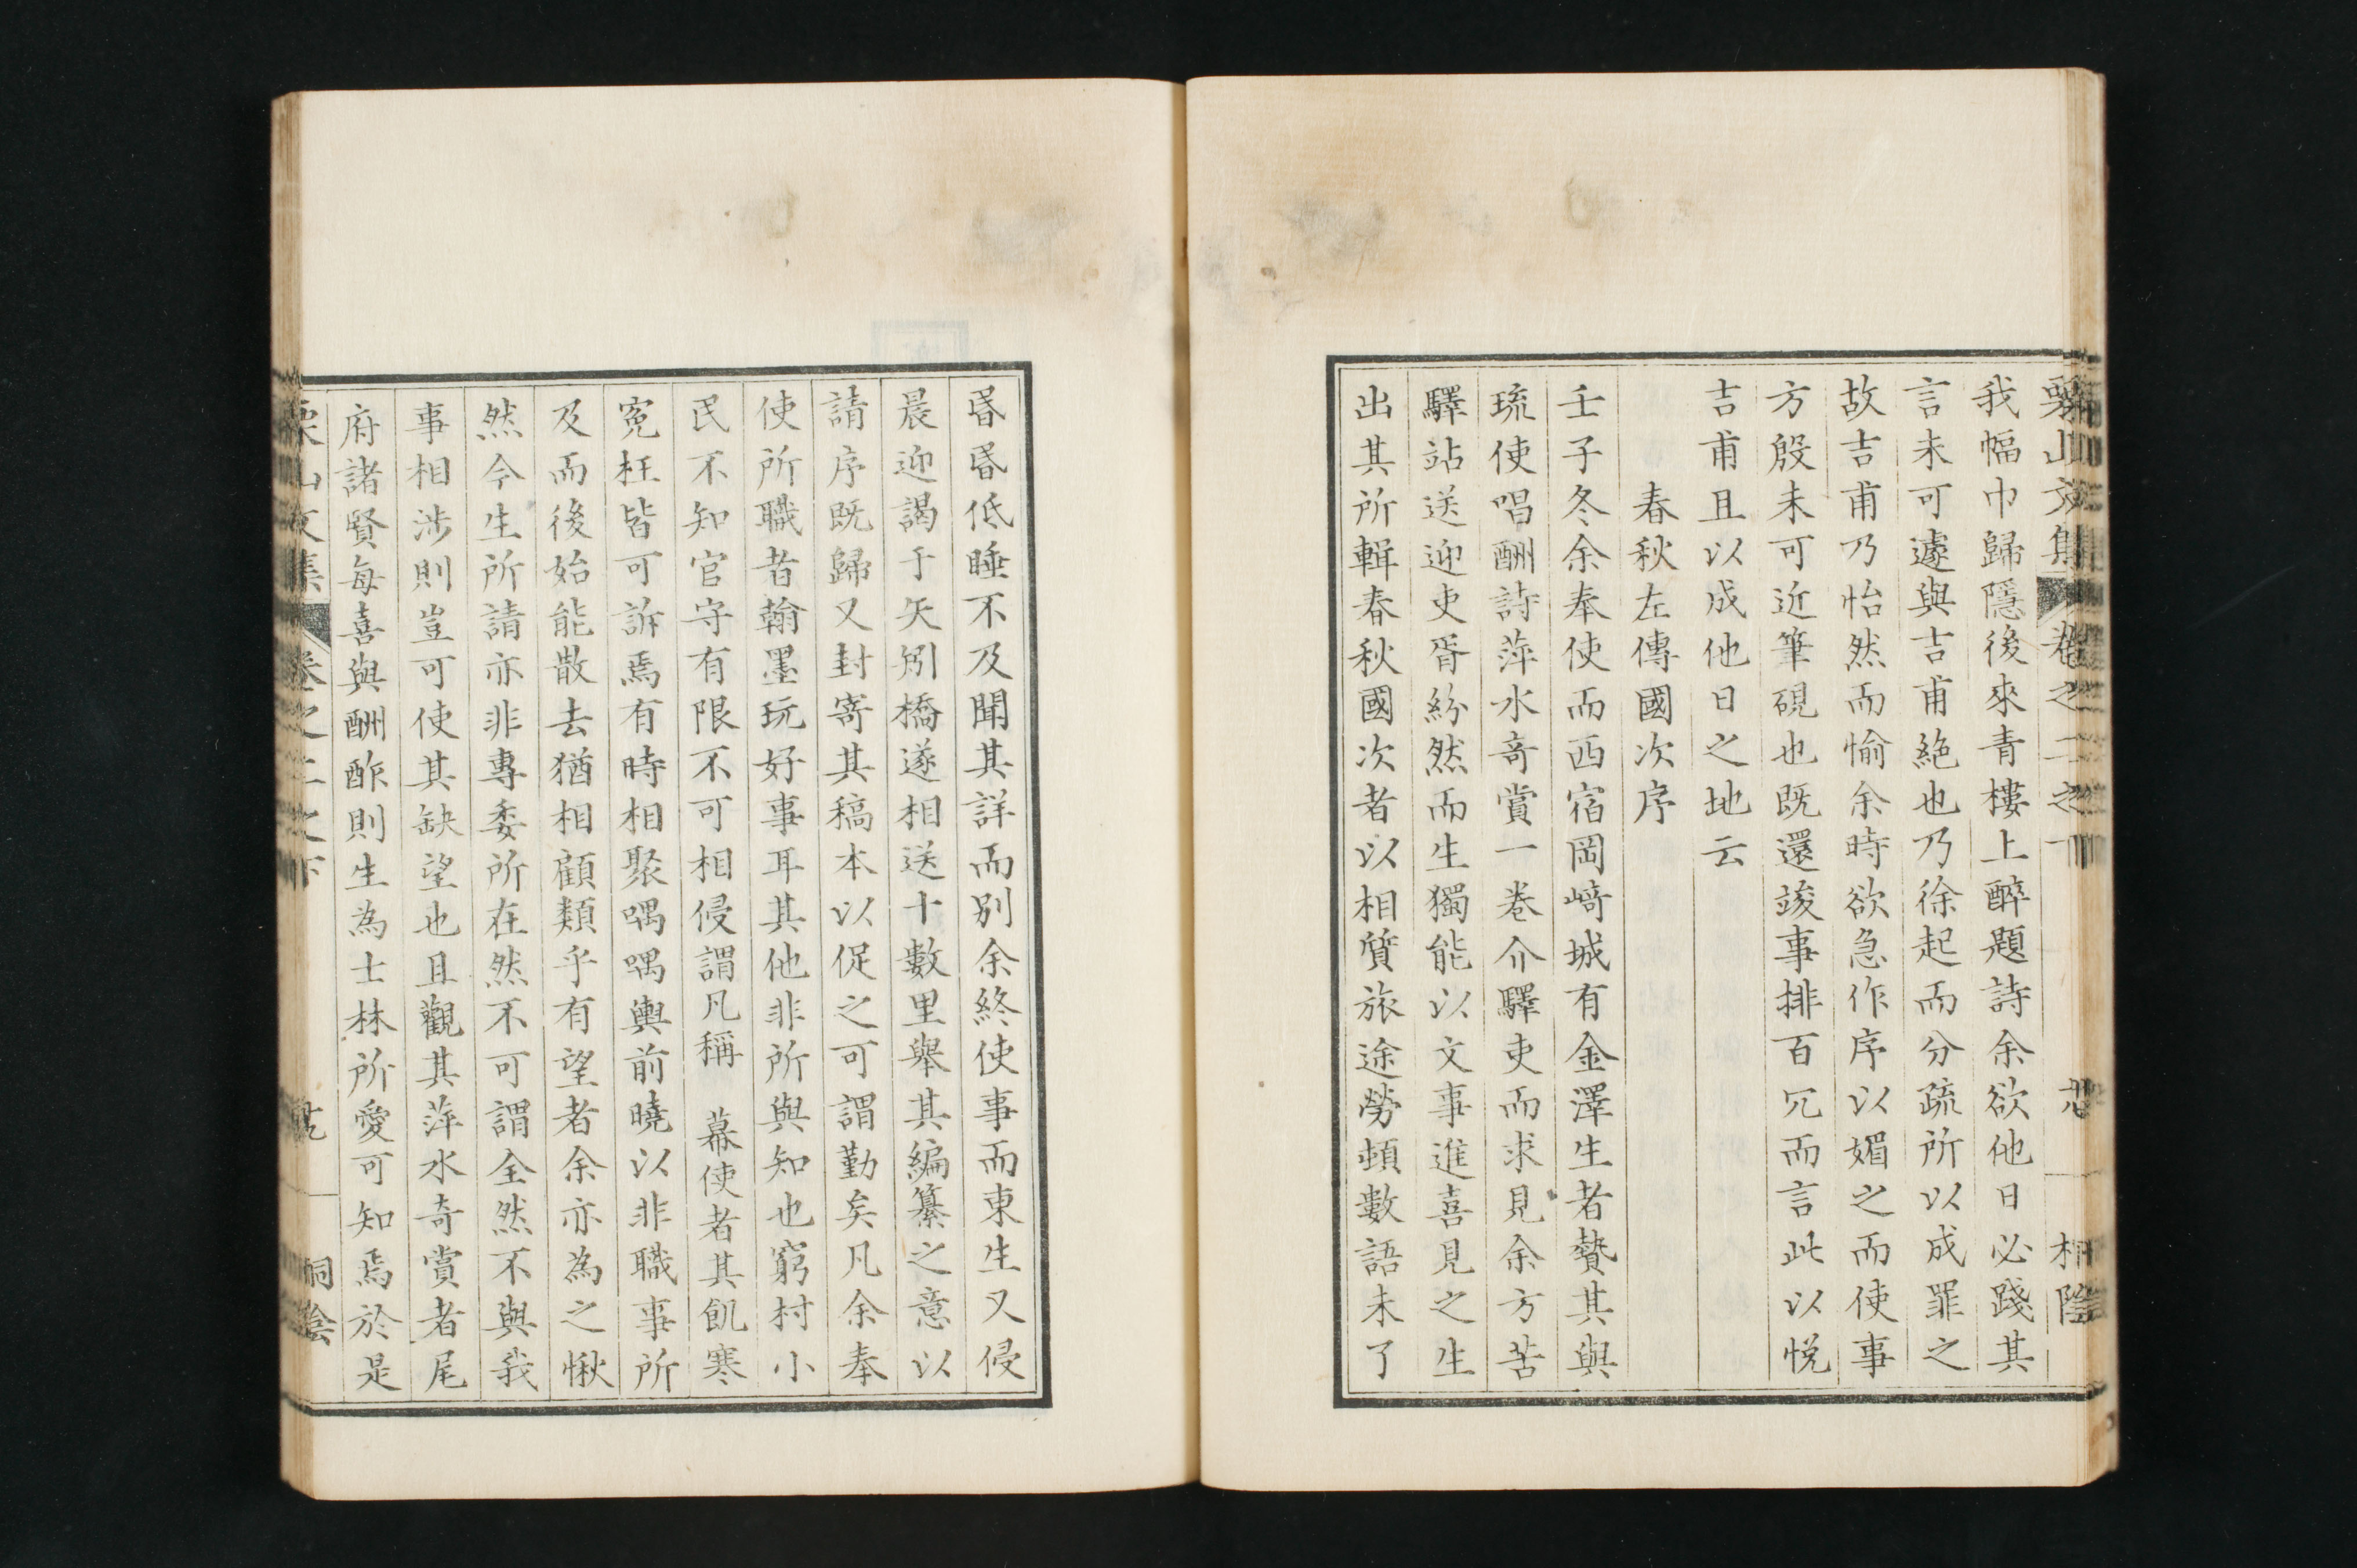 栗山文集 卷之二之下 桐陰
我幅巾歸隱後來青樓上醉題詩余欲他日必踐其
言未可遽與吉甫絶也乃徐起而分疏所以成罪之
故吉甫乃怡然而愉余時欲急作序以媚之而使事
方殷未可近筆硯也既還竣事排百冗而言此以悦
吉甫且以成他日之地云
春秋左傳國次序
壬子冬余奉使而西宿岡﨑城有金澤生者贄其與
琉使唱酬詩萍水奇賞一卷介驛吏而求見余方苦
驛站送迎吏胥紛然而生獨能以文事進喜見之生
出其所輯春秋國次者以相質旅途勞頓數語未了
昏昏低睡不及聞其詳而別余終使事而東生又侵
晨迎謁于矢矧橋遂相送十數里舉其編纂之意以
請序既歸又封寄其稿本以促之可謂勤矣凡余奉
使所職者翰墨玩好事耳其他非所與知也窮村小
民不知官守有限不可相侵謂凡稱 幕使者其飢寒
冤枉皆可訴焉有時相聚喁喁輿前曉以非職事所
及而後始能散去猶相顧類乎有望者余亦為之愀
然今生所請亦非專委所在然不可謂全然不與我
事相涉則豈可使其缺望也且觀其萍水奇賞者尾
府諸賢每喜與酬酢則生為士林所愛可知焉於是
栗山文集 卷之二之下 桐陰